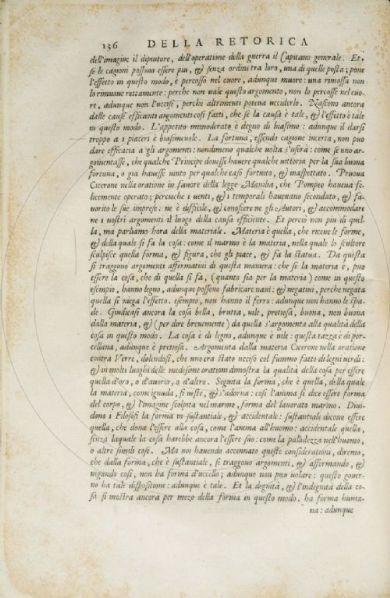 136 DELLA RETORICA
dell'imagine il dipintore, dell'operatione della guerra il Capitano generale. Et,
se le cagioni possono essere piu, & senza ordine tra loro, una di quelle posta; pone
l'effetto in questo modo, è percosso nel cuore, adunque muore: una rimossa non
lo rimuove rettamente: perche non vale questo argomento, non lo percosse nel cuo-
re, adunque non l'uccise, perchi altrimenti potena ucciderlo. Nascono ancora
dalle cause efficienti argomenti cosi fatti, che se la causa è tale, & l'effetto è tale
in questo modo. L'appetito immoderato è degno di biasimo: adunque il darsi
troppo a i piaceri è biasimevole. La fortuna, essendo cagione incerta, non puo
dare efficacia a gli argomenti: nondimeno qualche volta s'usera: come se uno ar-
gomentasse, che qualche Principe dovesse havere qualche vittoria per la sua buona
fortuna, o gia havesse vinto per qualche caso fortuito, & inaspettato. Pruova
Cicerone nella oratione in favore della legge Manilia, che Pompeo haveva fe-
licemente operato; perche i venti, & i temporali havevano secondato, & fa-
vorito le sue imprese: ne è difficile, & accommodare
ne i vostri argomenti al luogo della causa efficiente. Et percio non piu di quel-
la, ma parliamo hora della materiale. Materia è quella, che riceve le forme,
& della quale si fa la cosa: come il marmo è la materia, nella quale lo scultore
scolpisce quella forma, & figura, che gli piace, & fa la statua. Da questa
si traggono argomenti affermativi di questa maniera: che se la materia è, puo
essere la cosa, che di quella si fa, (quanto sia per la materia) come in questo
esempio, hanno legno, adunque possono fabricare navi: & negativi, perche negata
quella si niega l'effetto. esempio, non hanno il ferro: adunque non hanno le spa-
de. Giudicasi ancora la cosa bella, brutta, vile, pretiosa, buona, non buona
dalla materia, & (per dire brevemente) da quella s'argomenta alla qualità della
cosa in questo modo. La cosa è di legno, adunque è vile: questa tazza è di por-
cellana, adunque è pretiosa. Argomenta dalla materia Cicerone nella oratione
contra Verre, dolendosi, che uno era stato ucciso col fiammo fatto di legni verdi:
& in molti luoghi delle medesime orationi dimostra la qualità della cosa per essere
quella d'oro, o d'avorio, o d'altro. Seguita la forma, che è quella, della quale
la materia, come ignuda, si veste, & s'adorna: cosi l'anima si dice essere forma
del corpo, & l'imagine scolpita nel marmo, forma del lavorato marmo. Divi-
dono i Filosofi la forma in sustantiale, & accidentale: sustantiale dicono essere
quella, che dona l'essere alla cosa, come l'anima all'huomo: accidentale quella,
senza laquale la cosa harebbe ancora l'essere suo: come la pallidezza nell'huomo,
o altre simili cose. Ma noi havendo accennato queste considerationi, diremo,
che dalla forma, che è sustantiale, si traggono argomenti, & affermando, &
negando cosi, non ha forma d'uccello; adunque non puo volare: questo gover-
no ha tale dispositione: adunque è tale. Et la degnità, & l'indegnità della co-
sa si mostra ancora per mezo della forma in questo modo, ha forma huma-
na: adunque